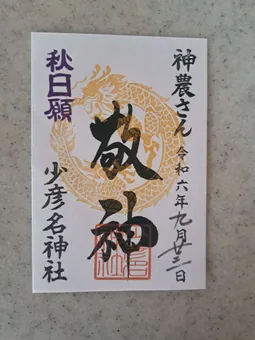 神農さん 令和六年九月廿三日
敬神
秋日願
少彦名神社